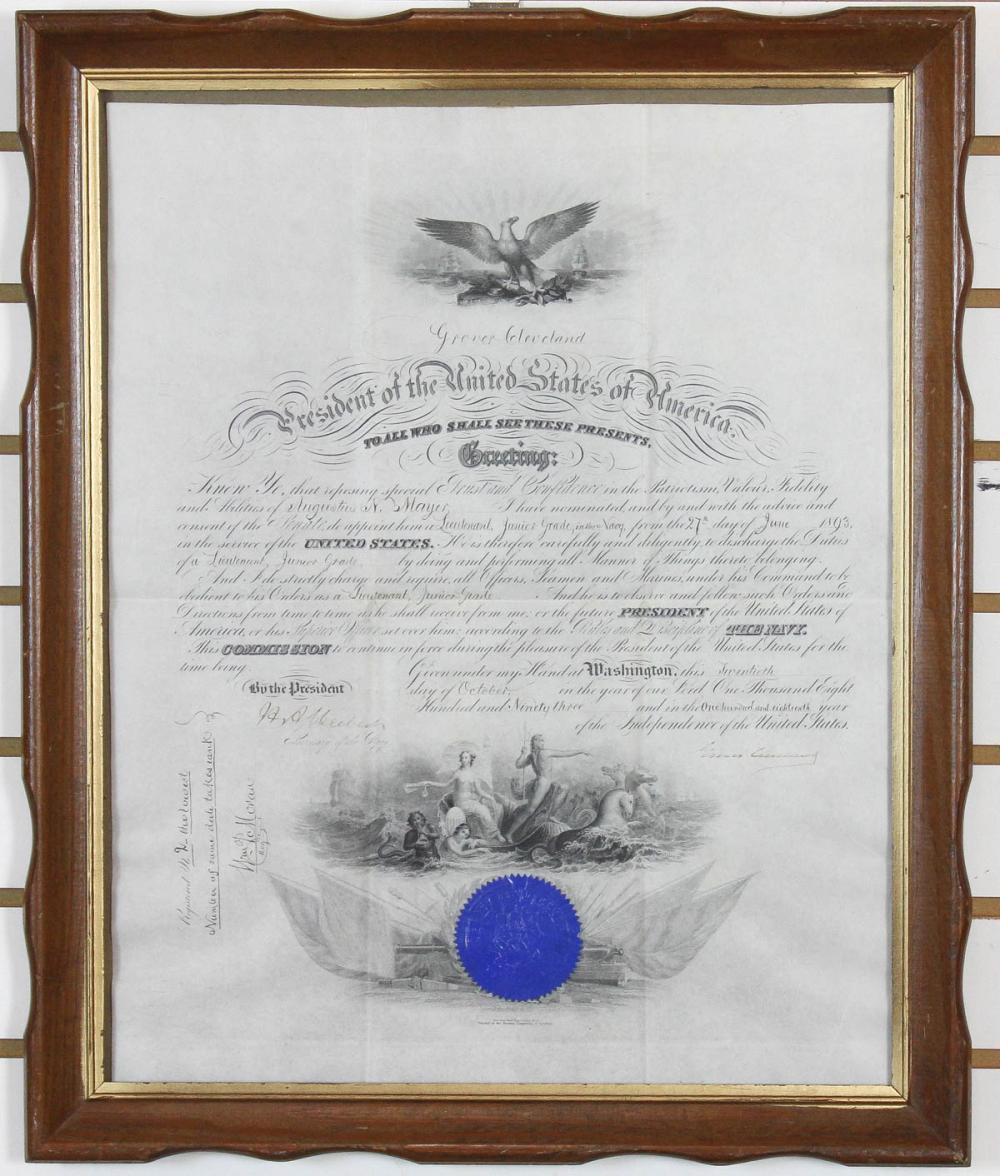 Grover Cleveland
President of the United States of America.
TO ALL WHO SHALL SEE THESE PRESENTS,
Greeting:
Know Ye, that reposing special Trust and Confidence in the Patriotism, Valour, Fidelity
and Abilities of Augustus N. Mayer I have nominated, and by and with the advice and
consent of the Senate, do appoint him a Lieutenant, Junior Grade, in the Navy, from the 27th day of June 1893,
in the service of the UNITED STATES. He is therefore carefully and diligently, to discharge the Duties
of a Lieutenant, Junior Grade by doing and performing all Manner of Things thereto belonging.
And I do strictly charge and require, all Officers, Seamen and Marines, under his Command to be
obedient to his Orders as a Lieutenant, Junior Grade And he is to observe and follow such Orders and
Directions from time to time as he shall receive from me, or the future PRESIDENT of the United States of
America, or his Superior Officer set over him, according to the Rules and Discipline of THE NAVY.
This COMMISSION to continue in force during the pleasure of the President of the United States for the
time being.
Given under my Hand at Washington, this Twentieth
By the President
day of October, in the year of our Lord One Thousand Eight
Hundred and Ninety three and in the One hundred and eighteenth year
of the Independence of the United States.
Secretary of the Navy
Number of same date takes rank